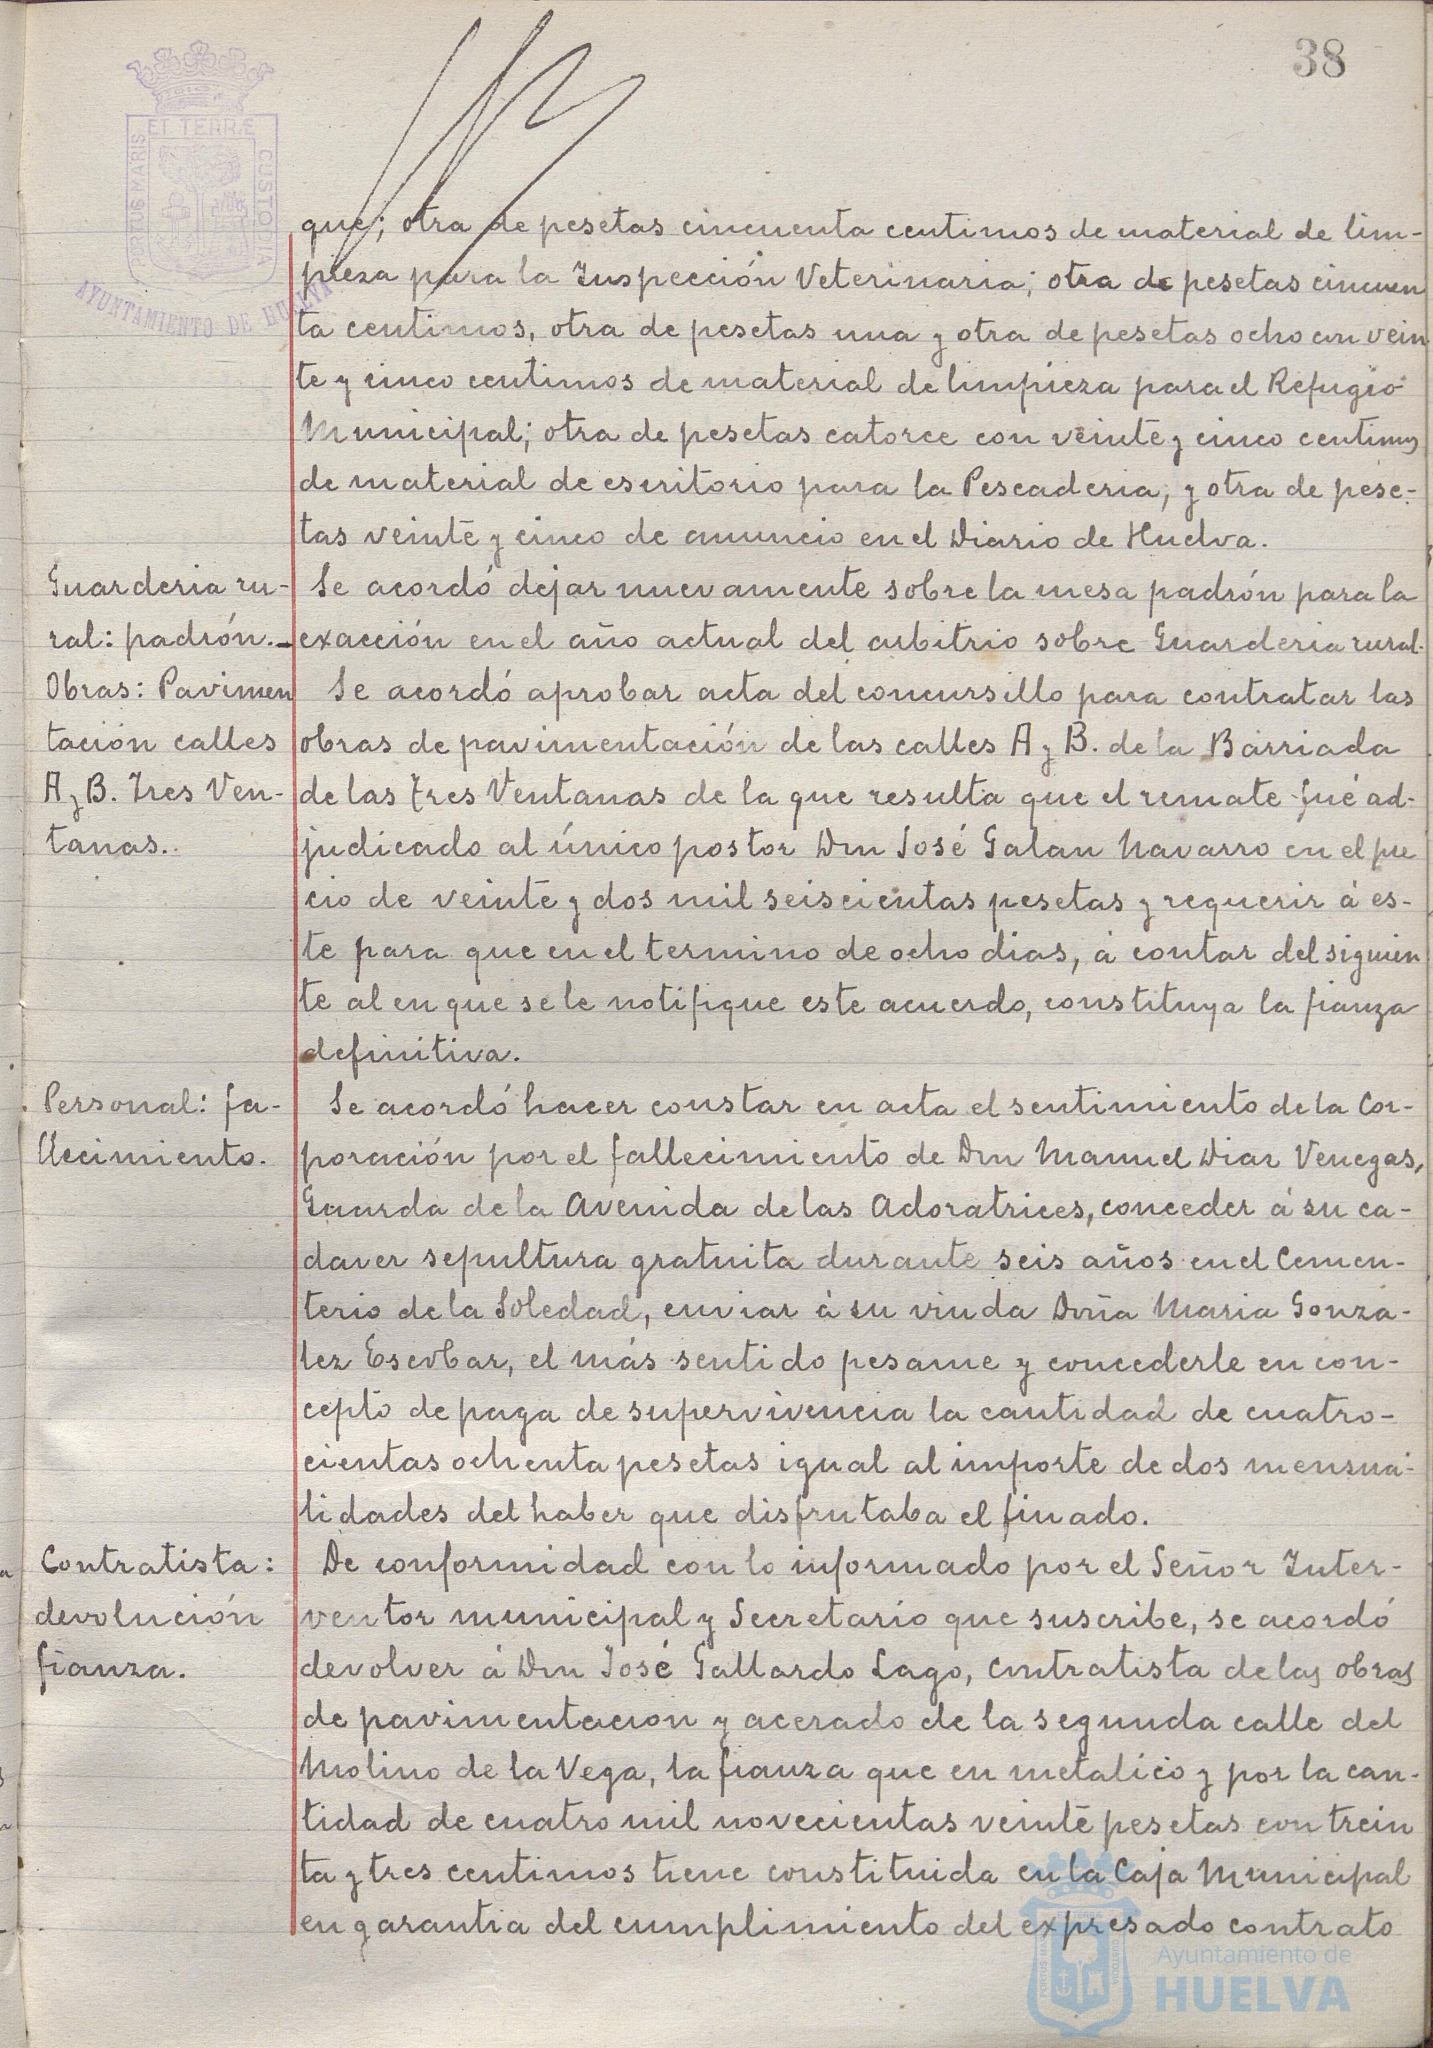 38
PORTUS MARIS ET TERRÆ CUSTODIA
AYUNTAMIENTO DE HUELVA
que; otra de pesetas cincuenta centimos de material de lim-
pieza para la Inspección Veterinaria; otra de pesetas cincuen
ta centimos, otra de pesetas una y otra de pesetas ocho con vein
te y cinco centimos de material de limpieza para el Refugio
Municipal; otra de pesetas catorce con veinte y cinco centimos
de material de escritorio para la Pescaderia, y otra de pese-
tas veinte y cinco de anuncio en el Diario de Huelva.
Guarderia ru-
ral: padrón.-
Se acordó dejar nuevamente sobre la mesa padrón para la
exacción en el año actual del arbitrio sobre Guarderia rural.
Obras: Pavimen
tación calles
A y B. Tres Ven-
tanas.
Se acordó aprobar acta del concursillo para contratar las
obras de pavimentación de las calles A y B. de la Barriada
de las Tres Ventanas de la que resulta que el remate fué ad-
judicado al único postor Don José Galan Navarro en el pre
cio de veinte y dos mil seiscientas pesetas y requerir á es-
te para que en el termino de ocho dias, á contar del siguien
te al en que se le notifique este acuerdo, constituya la fianza
definitiva.
Personal: fa-
llecimiento.
Se acordó hacer constar en acta el sentimiento de la Cor-
poración por el fallecimiento de Don Manuel Diaz Venegas,
Guarda de la Avenida de las Adoratrices, conceder á su ca-
daver sepultura gratuita durante seis años en el Cemen-
terio de la Soledad, enviar á su viuda Doña Maria Gonzá-
lez Escobar, el más sentido pesame y concederle en con-
cepto de paga de supervivencia la cantidad de cuatro-
cientas ochenta pesetas igual al importe de dos mensua-
lidades del haber que disfrutaba el finado.
Contratista:
devolución
fianza.
De conformidad con lo informado por el Señor Inter-
ventor municipal y Secretario que suscribe, se acordó
devolver á Don José Gallardo Lago, contratista de las obras
de pavimentacion y acerado de la segunda calle del
Molino de la Vega, la fianza que en metalico y por la can-
tidad de cuatro mil novecientas veinte pesetas con trein
ta y tres centimos tiene constituida en la Caja Municipal
en garantia del cumplimiento del expresado contrato
Ayuntamiento de
HUELVA